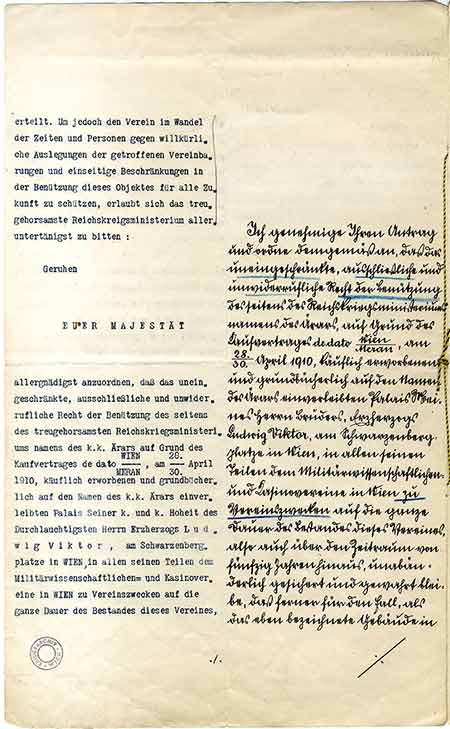 erteilt. Um jedoch den Verein im Wandel
der Zeiten und Personen gegen willkürli=
che Auslegungen der getroffenen Vereinba=
rungen und einseitige Beschränkungen in
der Benützung dieses Objektes für alle Zu=
kunft zu schützen, erlaubt sich das treu=
gehorsamste Reichskreigsministerium aller=
untertänigst zu bitten :
Geruhen
EUER MAJESTÄT
allergnädigst anzuordnen, daß das unein=
geschränkte, ausschließliche und unwider=
rufliche Recht der Benützung des seitens
des treugehorsamsten Reichskriegsministeri=
ums namens des k.k. Ärars auf Grund des
Kaufvertrages de dato WIEN/MERAN, am 28./30. April
1910, käuflich erworbenen und grundbücher=
lich auf den Namen des k.k. Ärars einver=
leibten Palais Seiner k. und k. Hoheit des
Durchlauchtigsten Herrn Erzherzogs Lud=
wig Viktor, am Schwarzenberg=
platze in WIEN, in allen seinen Teilen dem
Militärwissenschaftlichen= und Kasinover=
eine in WIEN zu Vereinszwecken auf die
ganze Dauer des Bestandes dieses Vereines,
./.
Ich genehmige Ihren Antrag
und ordne demgemäß an, das das
uneingeschränkte, ausschließliche und
unwiderrufliche Recht der Benützung
des seitens des Reichskriegsministeriums
namens des Ärars, auf Grund des
Kaufvertrages de dato Wien/Meran, am
28./30. April 1910, käuflich erworbenen
und grundbücherlich auf den Namen
des Ärars einverleibten Palais Mei=
nes Herrn Bruders, Erzherzogs
Ludwig Viktor, am Schwarzenberg=
platze in Wien, in allen seinen
Teilen dem Militärwissenschaftlichen=
und Kasinovereine in Wien zu
Vereinszwecken auf die ganze
Dauer des Bestandes dieses Vereines,
also auch über den Zeitraum von
fünfzig Jahren hinaus, unabän=
derlich gesichert und gewahrt blei=
be, daß ferner für den Fall, als
das eben bezeichnete Gebäude in
./.